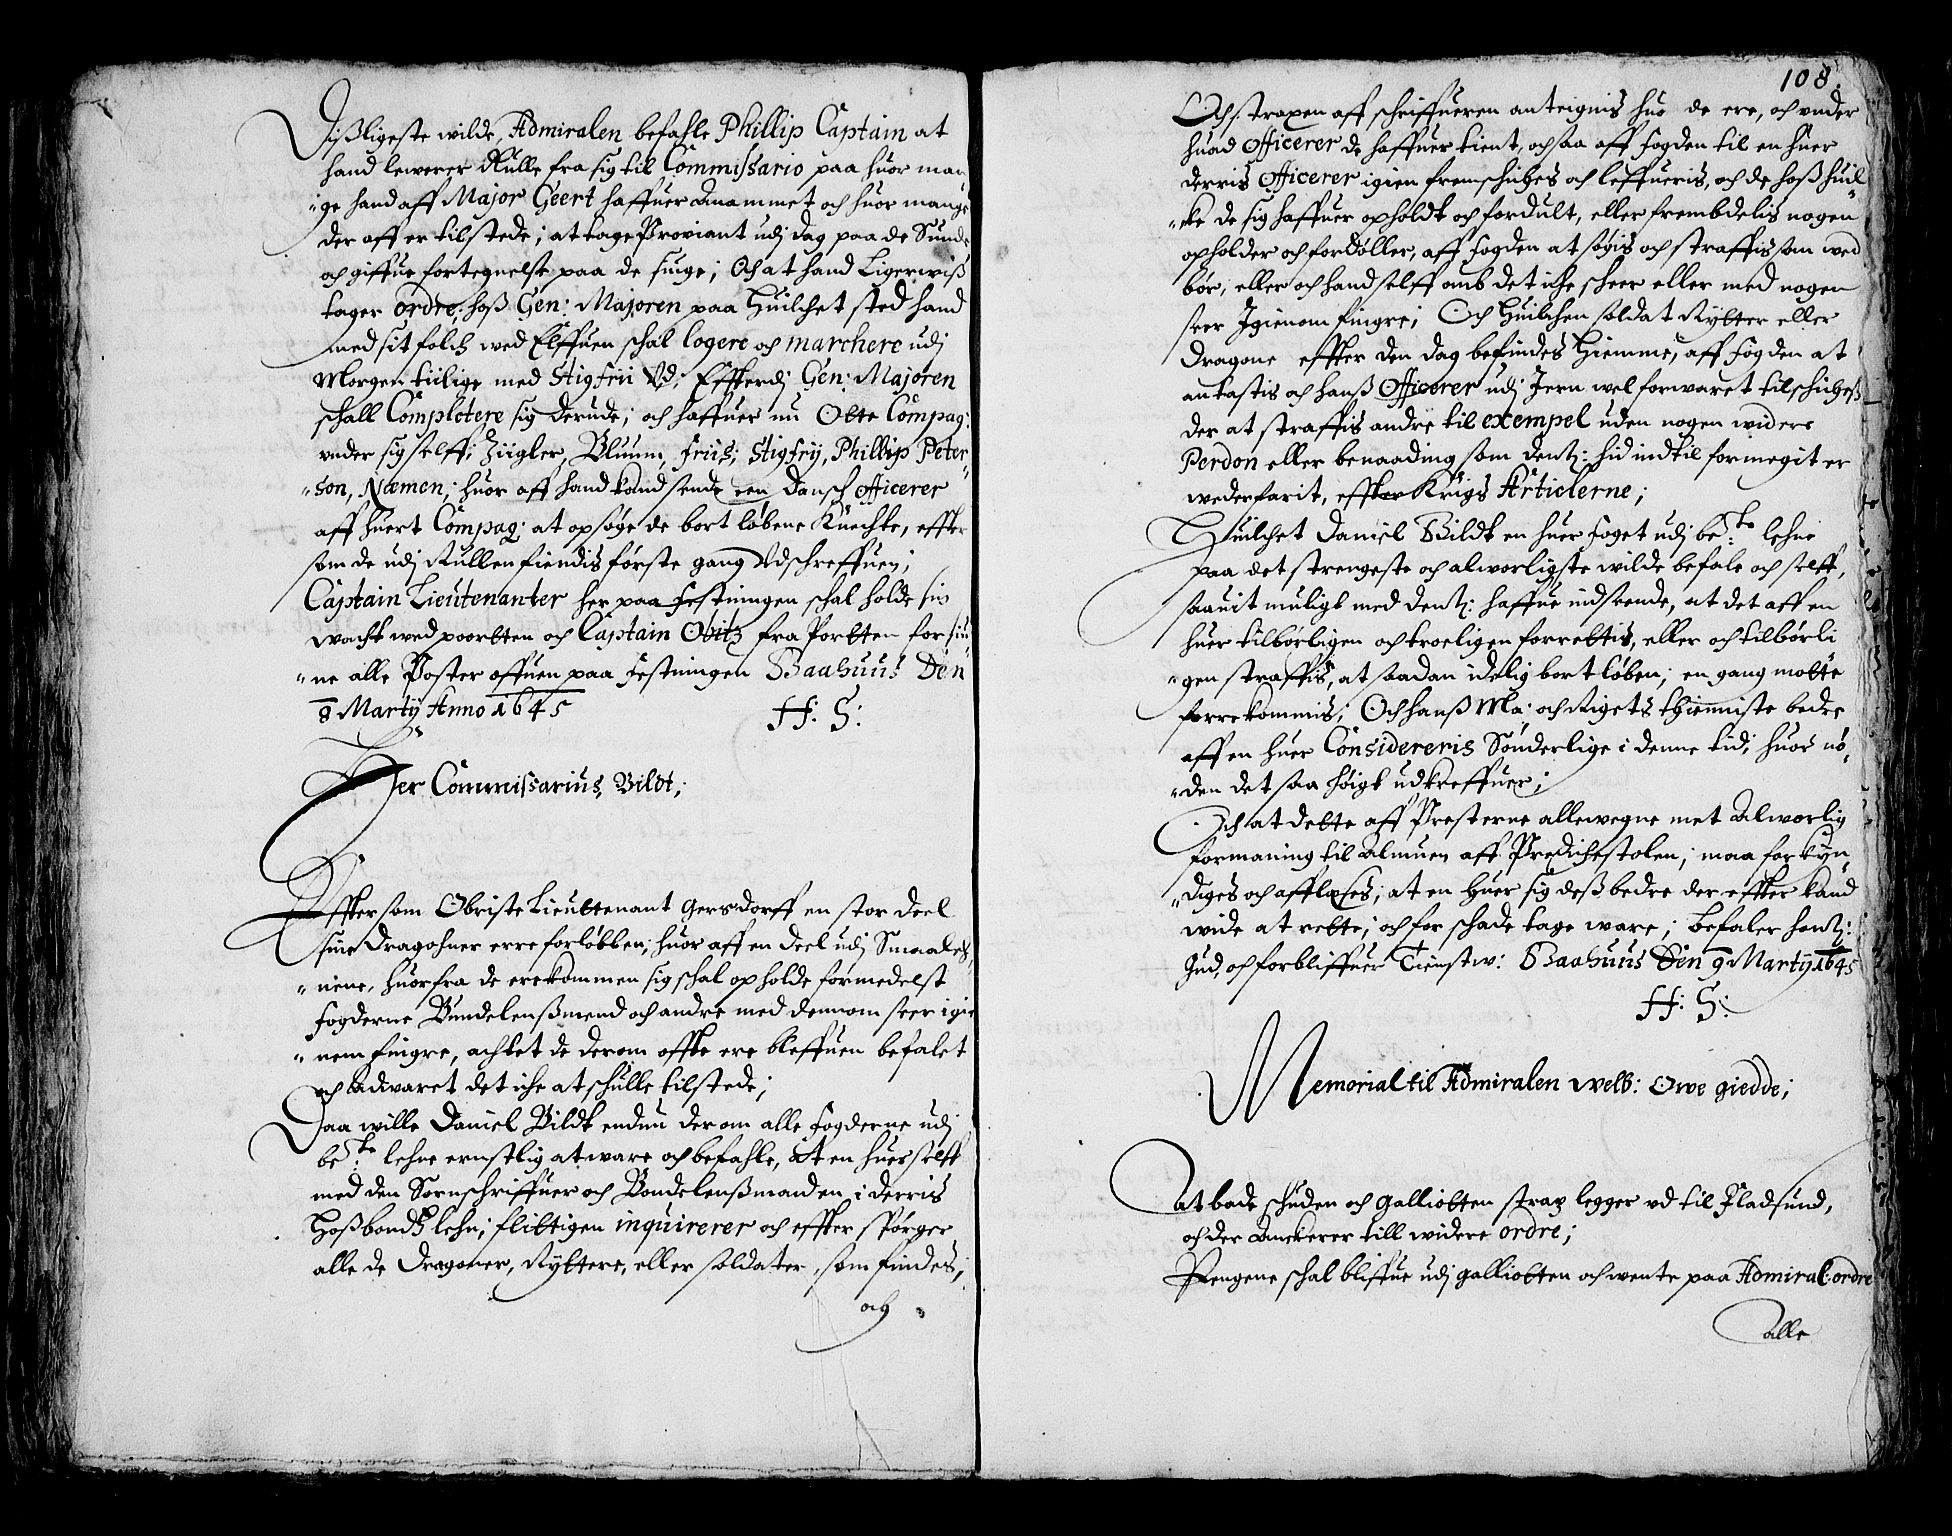 Dißligeste wilde, Admiralen befahle Phillip Captain at
hand leverer Rulle fra sig til Commissario paa huor man
"ge hand aff Major Geert haffuer Anammet och huor mange
der aff er tilstede; at tage Proviant udj dag paa de Sunde
och giffue fortegnelse paa de siuge; Och at hand Ligerwiß
tager ordre; hoß Gen: Majoren paa Huilchet sted hand
med sit folch wed Elffuen schal logere och marchere udj
Morgen tiilige med Stigfrii Vd; Effterdj Gen: Majoren
schall Complotere sig derude; och haffuer nu Otte Compag:
vnder sig selff; Ziigler, Bluum, friis; Stigfrÿ, Phillip Peter
"son, Næmen; huor aff hand kand sende een Dansch officerer
aff huert Compag: at opsøge de bort løbene Knechte, effter
som de udj Rullen fiendis første gang Vdschreffuen;
Captain Lieutenanter her paa festningen schal holde sin
wacht wed poortten och Captain Obitz fra Portten for sin
"ne alle Poster offuen paa festningen Baahuus Den
8 Martÿ Anno 1645 H: S:
Her Commissarius, Bildt;
Effter som Obriste Lieuttenant Gersdorff en stor deel
siine Dragohner erre forløbben; huor aff en deel udj Smaaleh
"nene, huorfra de ere kommen sig schal opholde formedelst
fogderne Bundelenßmend och andre med dennom seer igie
"nem fingre, achtet de derom offte ere bleffuen befalet
och advaret det iche at schulle tilstede;
Daa wille Daniel Bildt endnu derom alle fogderne udj
be:te lehne ernstlig at ware och befahle, at en huer selff
med den Sornschriffuer och Bondelenßmanden i derris
Hoßbonds lehn; flittigen inquirerer och effter spørger
alle de Dragoner, Ryttere, eller soldater, som findes;
och
108.
Och straxen aff schriffueren anteignis huo de ere, och vnder
huad Officerer de haffuer tient, och saa aff fogden til en huer
derris Officerer igien fremschiches och leffueris, och de hoß huil
"cke de sig haffuer opholdt och fordult, eller frembdelis nogen
opholder och fordøller, aff fogden at søgis och straffis som wed
bør, eller och hand selff omb det iche scheer eller med nogen
seer Igienom fingre; Och Huilchen soldat Rytter eller
Dragone effter den dag befindes Hiemme, aff fogden at
antastis och hanß Officerer udj Jern wel forwaret tilschicheß
der at straffis andre til exempel uden nogen widere
Perdon eller benaading som dentz: hid indtil formegit er
wederfarit, effter Krigs Articlerne;
Huilchet Daniel Bildt en huer foget udj be:te lehne
paa det strengeste och alworligste wilde befale och selff,
saauit muligt med dentz: haffue indseende, at det aff en
huer tilbørligen och troeligen forrettis, eller och tilbørli
"gen straffis, at saadan idelig bort løben; en gang motte
forrekommis; Och hanß Ma: och Rigets thienniste bedre
aff en huer Considereris Sønderlige i denne tid; huor nø,
"den det saa høigt udkreffuer;
Och at dette aff Presterne allewegne met Alworlig
formaning til Almuen aff Predichestolen; maa forkÿn,
"diges och afflæses; at en huer sig deß bedre der effter kand
wide at rette; och for schade tage ware; befaler hentz:
Gud, och forbliffuer Tienstw: Baahuus Den 9 Martÿ 1645
H: S:
Memorial til Admiralen welb: Owe giedde;
At bade schuden och Galliotten strax legger vd til Fladsund,
och der Anckerer till widere ordre;
Pengene schal bliffue udj galliotten och wente paa Admiral: ordre
Alle